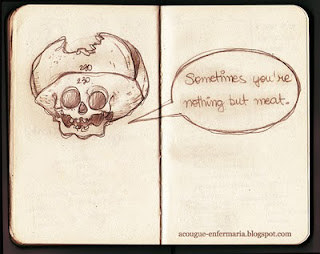 280
230
Sometimes you're
nothing but meat.
acougue-enfermaria.blogspot.com